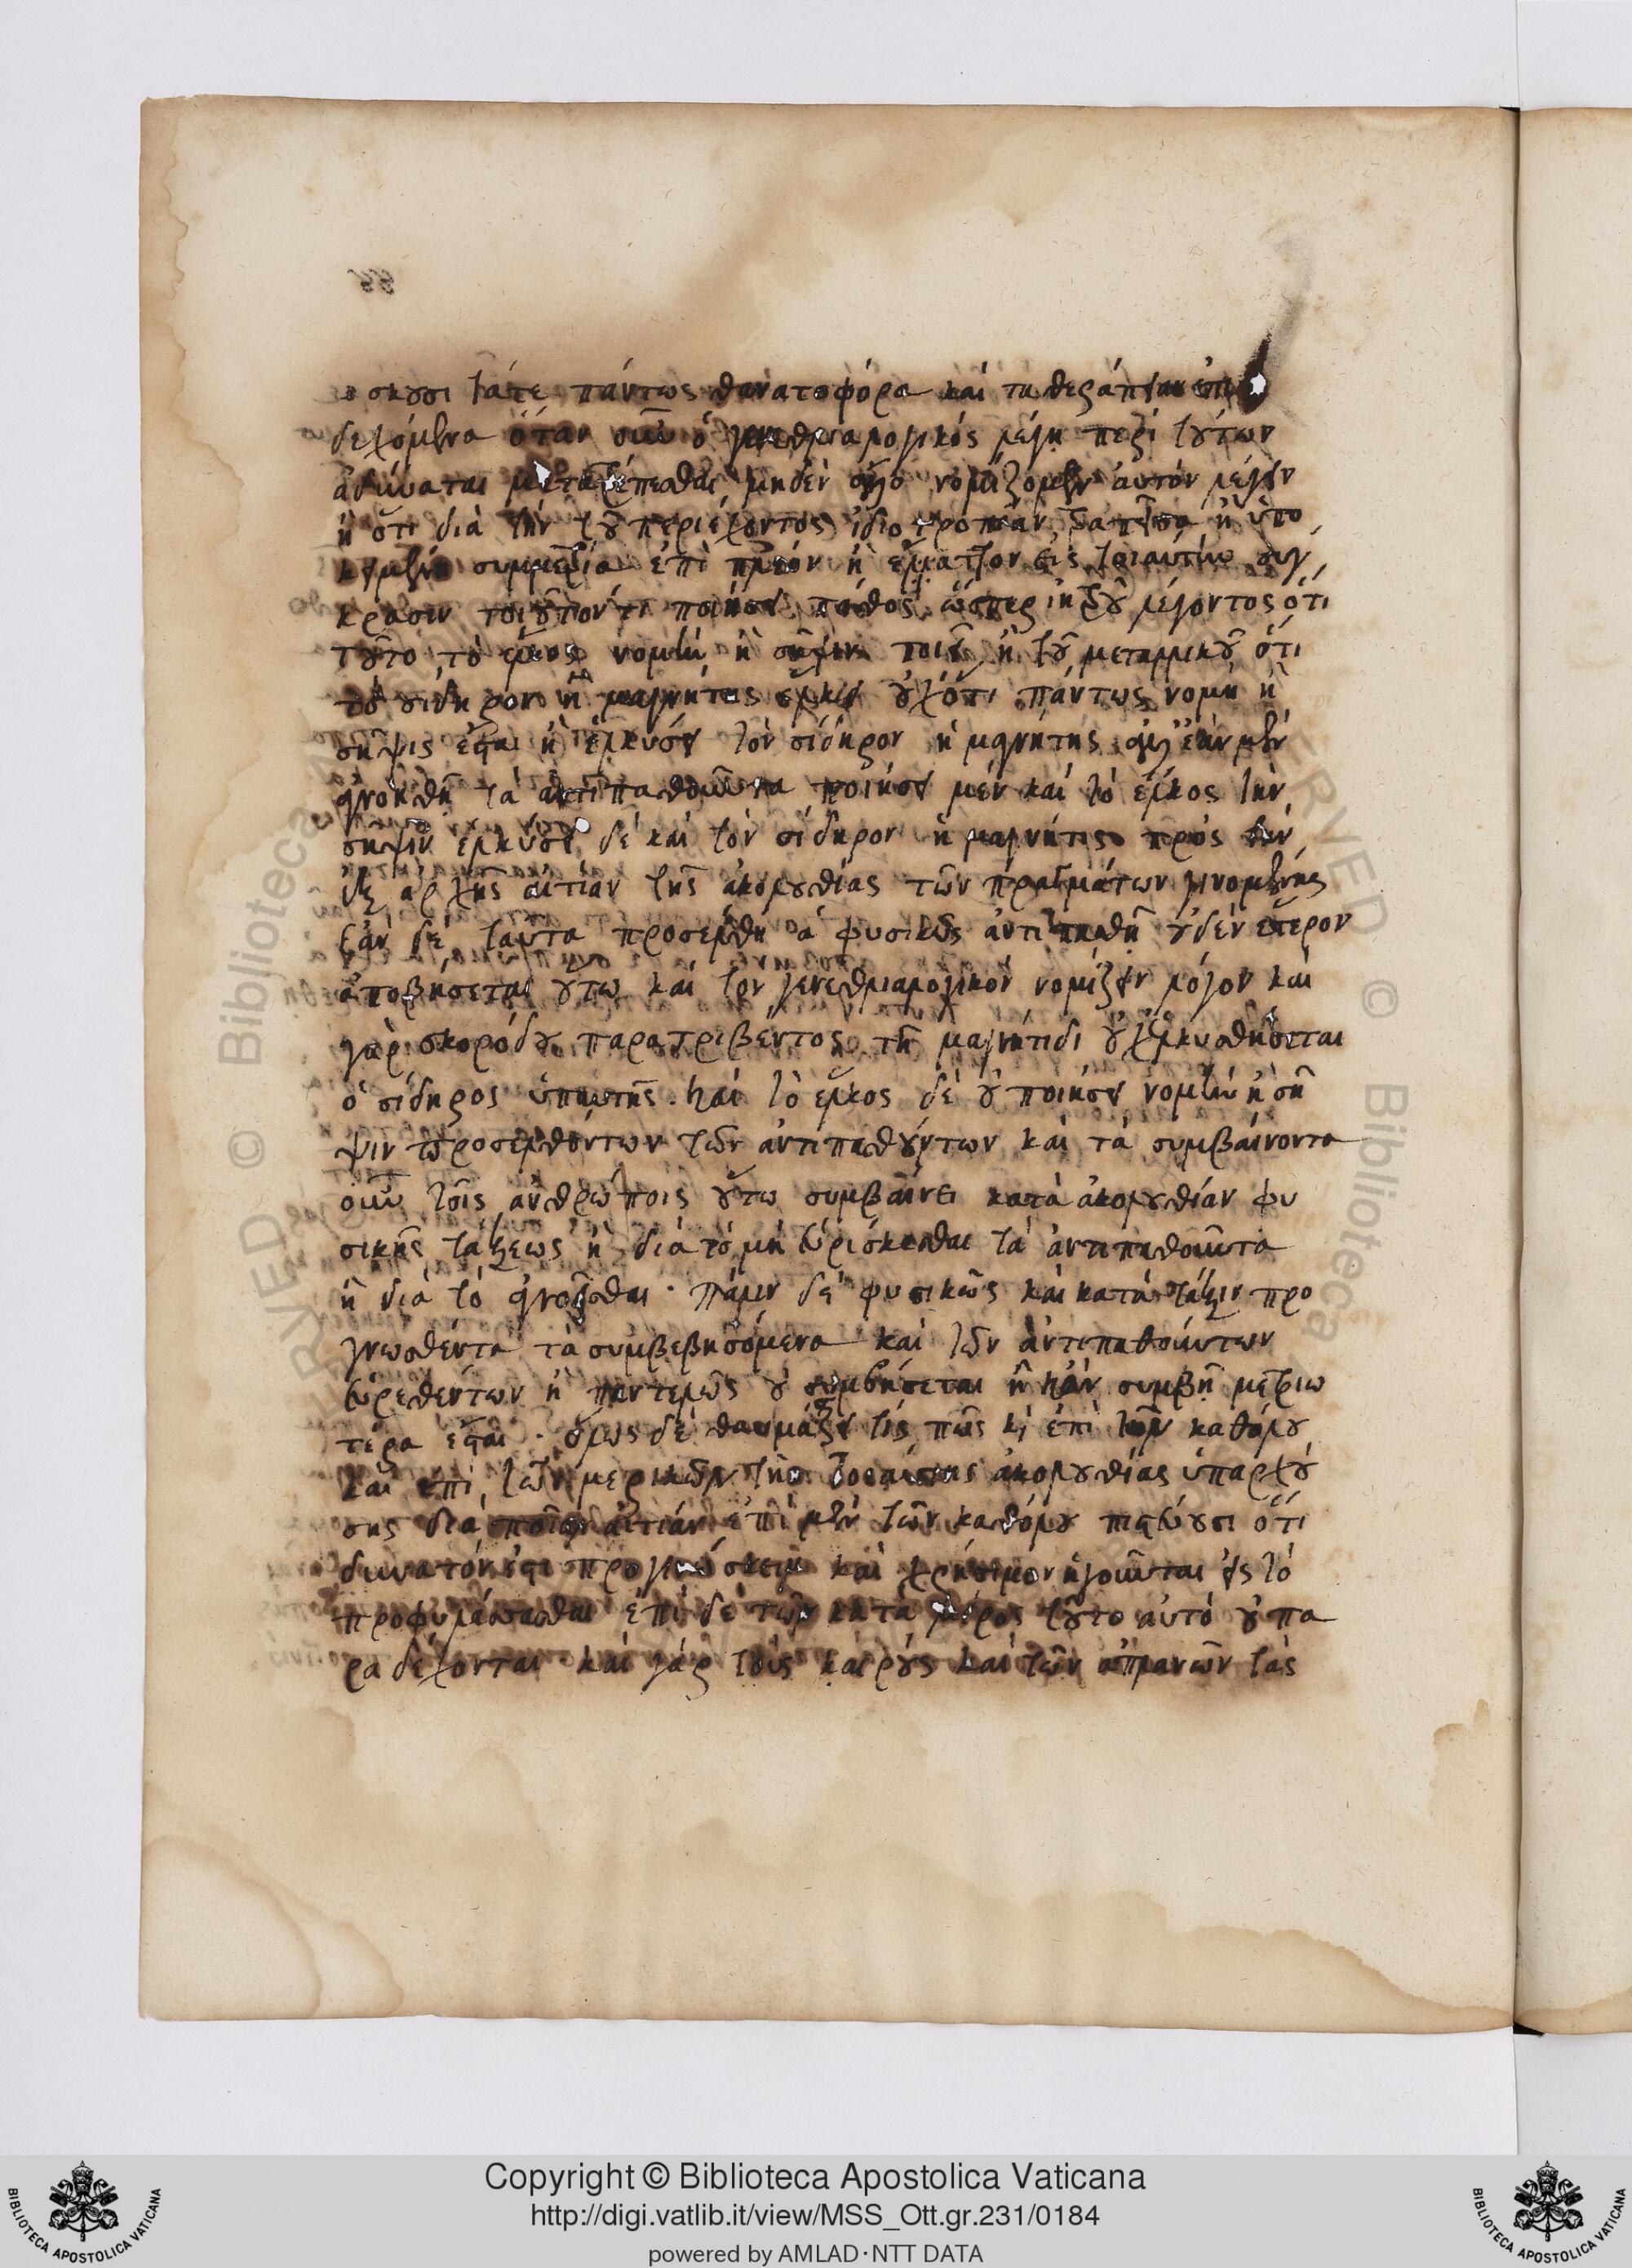 σκουσι τά τε πάντως θανατοφόρα καὶ τὰ θεραπείαν ἐπι
δεχόμενα ὅταν οὖν ὁ γενεθλιαλογικός λέγη περὶ τούτων
ἀδύναται μετατρέπεσθαι μηδὲν ἄλλο νομίζομεν αὐτὸν λέγειν
ἢ ὅτι διὰ τὴν τοῦ περιέχοντος ἰδιοτροπίαν ἡ ὑπο
κειμένη συμμετρία ἐπὶ πλέον ἢ ἔλαττον εἰς τοιαύτην συγ
κρασιν τοιοῦτόν τι ποιήσει πάθος ὥσπερ ἰητροῦ λέγοντος ὅτι
τοῦτο τὸ ἕλκος νομὴν ἢ σῆψιν ποιεῖ ἢ τοῦ μεταλλικοῦ ὅτι
τὸν σίδηρον ἡ μαγνήτις ἕλκει οὐχ ὅτι πάντως νομὴ ἢ
σῆψις ἔσται ἢ ἑλκύσει τὸν σίδηρον ἡ μαγνήτης ἀλλ' ἐὰν μὲν
ἀγνοηθῆ τὰ ἀντιπαθοῦντα ποιήσει μὲν καὶ τὸ ἕλκος τὴν
σῆψιν ἑλκύσει δὲ καὶ τὸν σίδηρον ἡ μαγνήτις πρὸς τὴν
ἐξ ἀρχῆς αἰτίαν τῆς ἀκολουθίας τῶν πραγμάτων γινομένης
ἐὰν δὲ ταῦτα προσελθῆ ἃ φυσικῶς ἀντιπαθῆ οὐδὲν ἕτερον
ἀποβήσεται οὕτω καὶ τὸν γενεθλιαλογικὸν νομίζειν λόγον καὶ
γὰρ σκορόδου παρατριβέντος τῆ μαγνήτιδι οὐχ ἑλκυσθήσεται
ὁ σίδηρος ὑπ' αὐτῆς. καὶ τὸ ἕλκος δὲ οὐ ποιήσει νομὴν ἢ σῆ
ψιν προσελθόντων τῶν ἀντιπαθούντων καὶ τὰ συμβαίνοντα
οὖν τοῖς ἀνθρώποις οὕτω συμβαίνει κατὰ ἀκολουθίαν φυ
σικῆς τάξεως ἢ διὰ τὸ μὴ εὑρίσκεσθαι τὰ ἀντιπαθοῦντα
ἢ διὰ τὸ ἀγνοεῖσθαι· πάλιν δὲ φυσικῶς καὶ κατὰ τάξιν προ
γνωσθέντα τὰ συμβεβησόμενα καὶ τῶν ἀντιπαθούντων
εὑρεθέντων ἢ παντελῶς οὐ συμβήσεται ἢ κἂν συμβῆ μετριω
τέρα ἔσται · ὅμως δὲ θαυμάζει τίς πῶς καὶ ἐπὶ τῶν καθόλου
καὶ ἐπὶ τῶν μερικῶν τῆς τοσαύτης ἀκολουθίας ὑπαρχού
σης διὰ ποίαν αἰτίαν ἐπὶ μὲν τῶν καθόλου πιστεύουσι ὅτι
δυνατόν ἐστι προγινώσκειν καὶ χρήσιμον ἡγοῦνται εἰς τὸ
προφυλάσσεσθαι ἐπὶ δὲ τῶν κατὰ μέρος τοῦτο αὐτὸ οὐ πα
ραδέχονται καὶ γὰρ τοὺς καιροὺς καὶ τῶν ἀπλανῶν τὰς
Copyright © Biblioteca Apostolica Vaticana
http://digi.vatlib.it/view/MSS_Ott.gr.231/0184
powered by AMLAD·NTT DATA